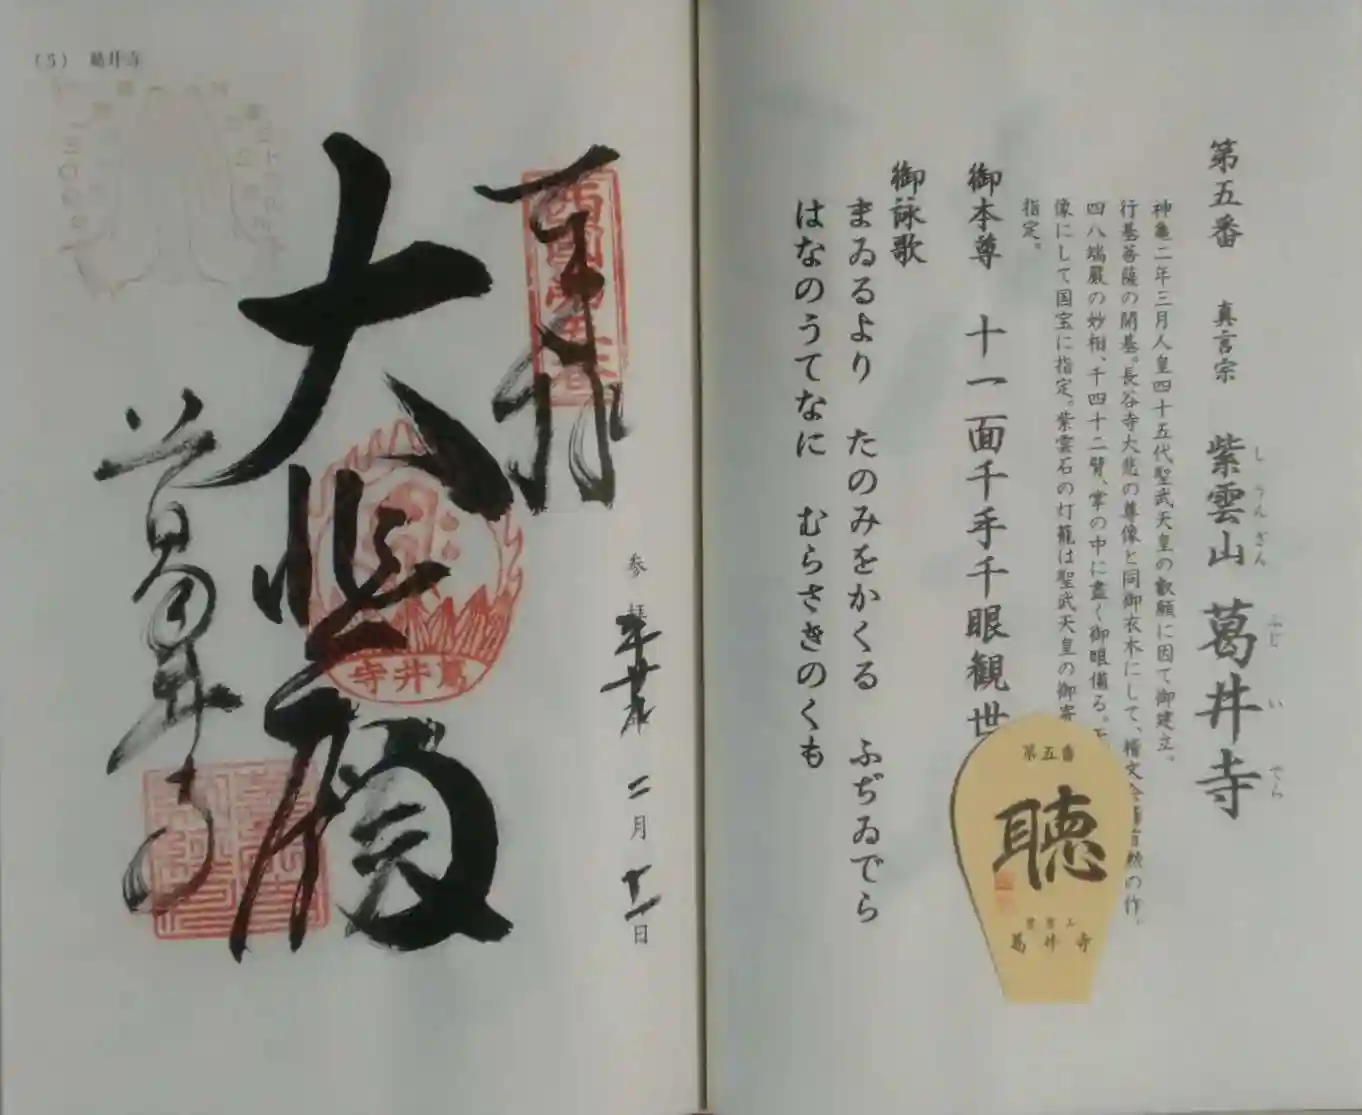 第五番 真言宗 紫雲山 葛井寺
しうんざん ふじいでら
神亀二年三月人皇四十五代聖武天皇の叡願に因て御建立。
行基菩薩の開基。長谷寺大悲の尊像と同御衣木にして、稽文会
の作。
四八端厳の妙相、千四十二臂、掌の中に盡く御眼備る。
像にして国宝に指定。紫雲石の灯籠は聖武天皇の御寄
指定。
御本尊 十一面千手千眼観世
御詠歌
まゐるより たのみをかくる ふぢゐでら
はなのうてなに むらさきのくも
第五番
聴
葛井寺
(5) 葛井寺
西國第五番
奉拝
参拝 平廿九年 二月十一日
大悲殿
葛井寺
葛井寺